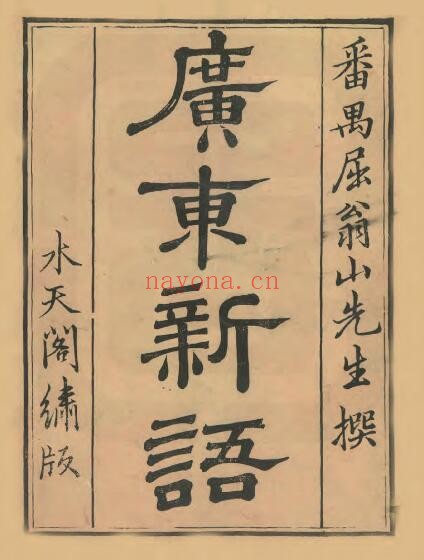 番禺屈翁山先生撰
廣東新語
水天閣繡版
nayona.cn